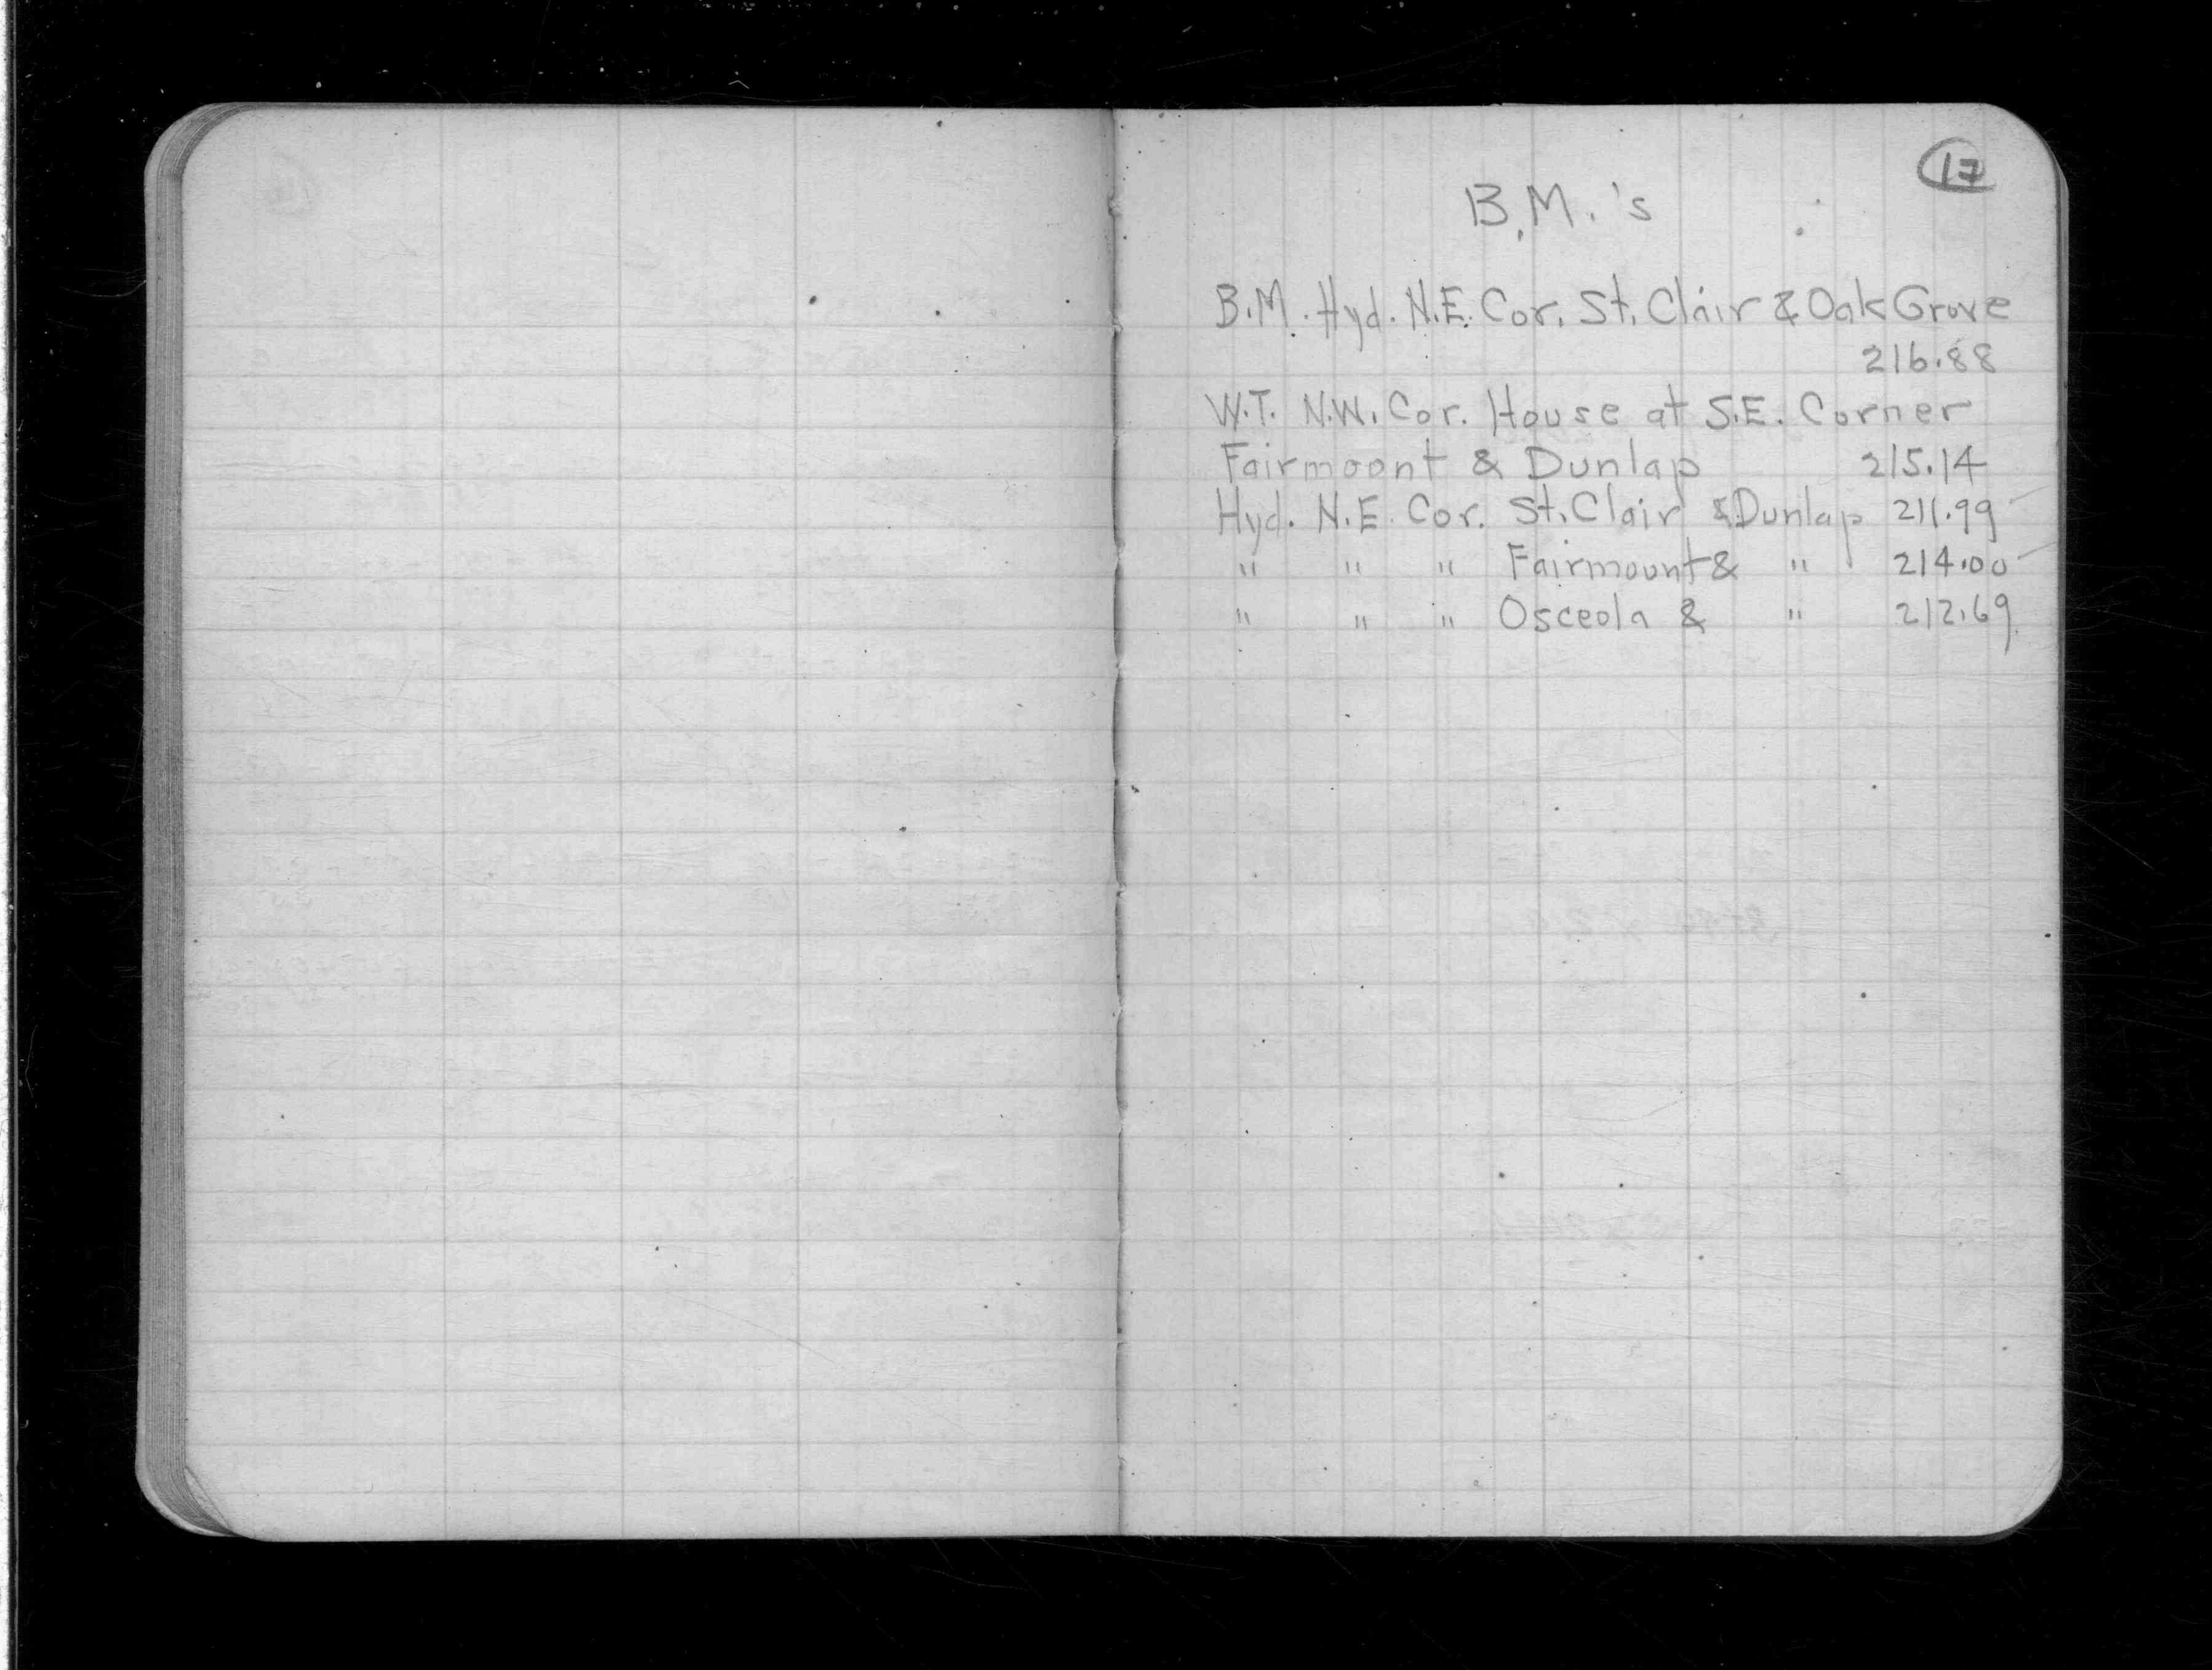 17
B.M.'s
B.M. Hyd. N.E. Cor. St. Clair & Oak Grove
216.88
W.T. N.W. Cor. House at S.E. Corner
Fairmount & Dunlap 215.14
Hyd. N.E. Cor. St. Clair & Dunlap 211.99
" " " Fairmount & " 214.00
" " " Osceola & " 212.69